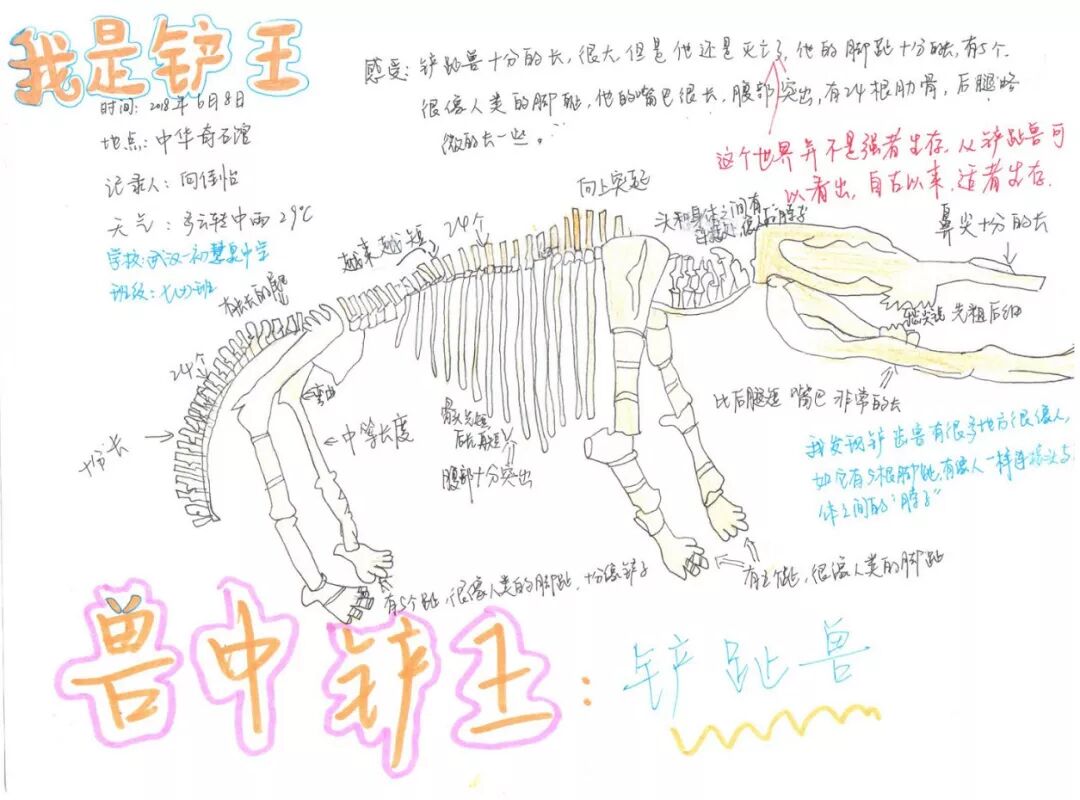 我是铲王
时间:2018年6月8日
地点:中华奇石馆
记录人:向佳怡
天气:多云转中雨 29℃
学校:武汉一初慧泉中学
班级:七(4)班
感受:铲趾兽十分的长,很大但是他还是灭亡了,他的脚趾十分的长,有5个.
很像人类的脚趾,他的嘴巴很长,腹部突出,有24根肋骨,后腿略
微的长一些。
这个世界并不是强者生存.从铲趾兽可
以看出,自古以来,适者生存.
向上突起
24个
越来越短
头和身体之间有
鼻尖十分的长
先粗后细
24个
弯曲
十分长
中等长度
腹部十分突出
比后腿短
嘴巴非常的长
我发现铲齿兽有很多地方很像人,
如它有5根脚趾,有像人一样连接头与
体之间的"脖子"
有5个趾,很像人类的脚趾,十分像铲子
有五个趾,很像人类的脚趾
兽中铲王:铲趾兽